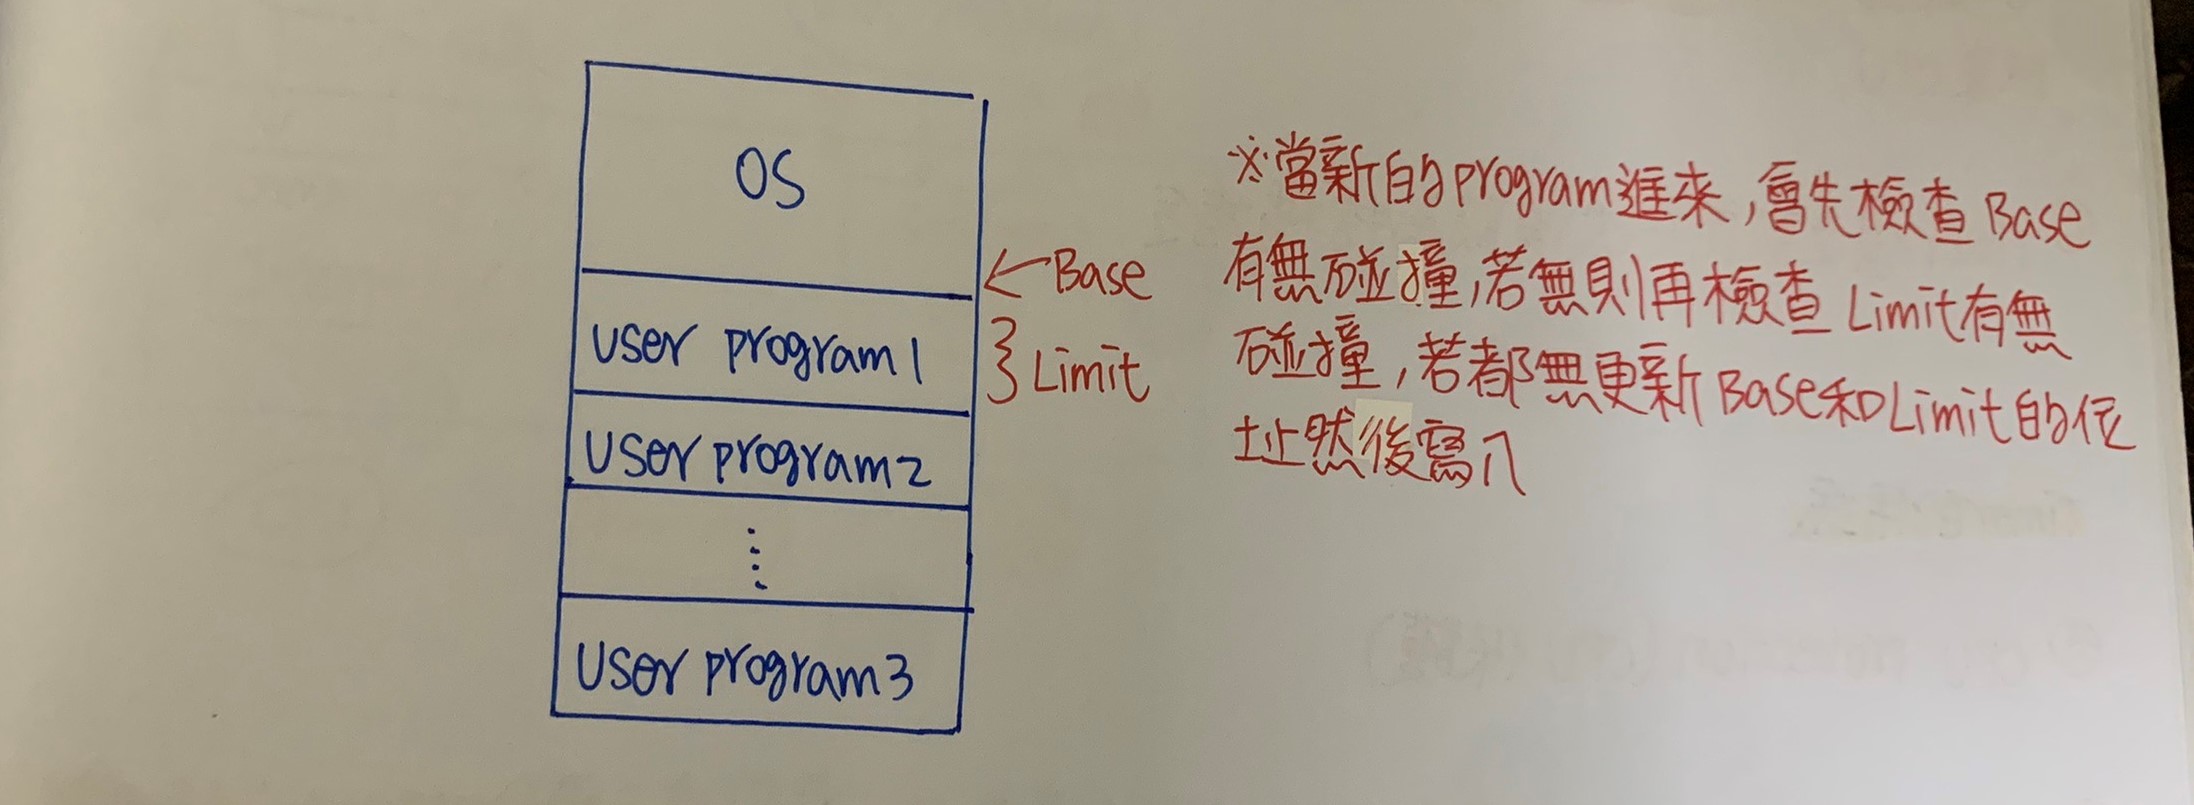 OS
←Base
user program1
} Limit
user program2
⋮
user program3
※當新的program進來,會先檢查Base
有無碰撞,若無則再檢查Limit有無
碰撞,若都無更新Base和Limit的位
址然後寫入